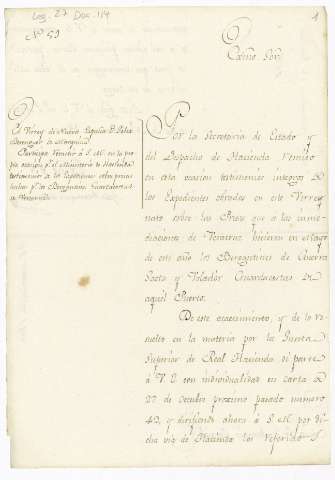 Leg. 27 Doc. 114
nº 59
1
Exmo. Sor.
El Virrey de Nueva España D. Felix
Berenguer de Marquina
Participa remitir á S. M. en la pro
pia ocasion pr. el Ministerio de Hacienda
testimonios de los Expedientes sobre presas
hechas pr. los Bergantines Guardacostas
de Veracruz.
Por la Secretaria de Estado y
del Despacho de Hacienda remito
en esta ocasion testimonios integros de
los Expedientes obrados en este Virrey-
nato sobre las Presas que a las inme-
diaciones de Veracruz hicieron en Mayo
de este año los Bergantines de Guerra
Saeta y Volador Guardacostas en
aquel Puerto.
De este acaecimiento, y de lo re-
suelto en la materia por la Junta
Superior de Real Hacienda di parte
á V. E. con individualidad en carta de
27 de Octubre proximo pasado numero
49, y dirigiendo ahora á S. M. por di-
cha via de Hacienda los referidos